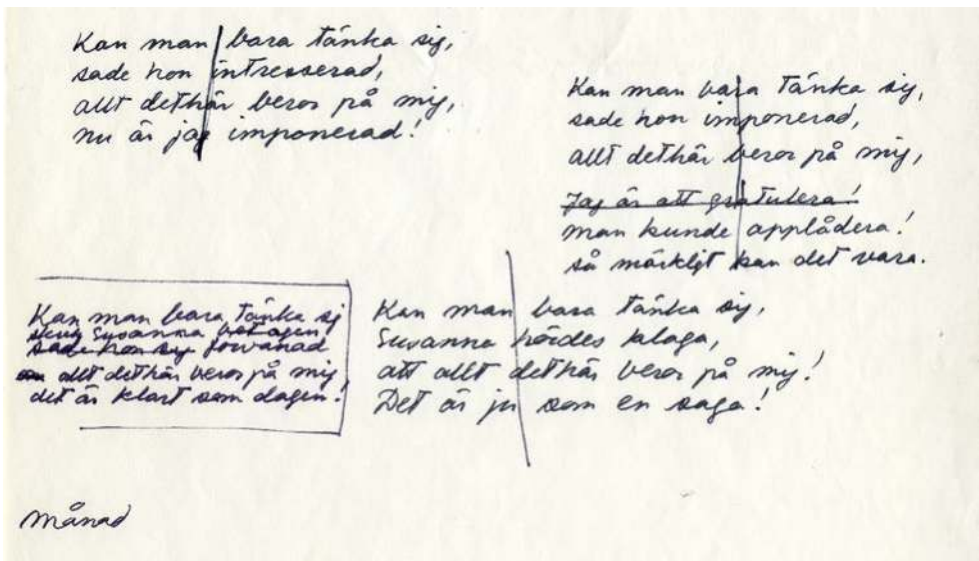 Kan man bara tänka sig,
sade hon intresserad,
allt dethär beror på mig,
nu är jag imponerad!
Kan man bara tänka sig,
sade hon imponerad,
allt dethär beror på mig,
Jag är att gratulera!
man kunde applådera!
så märkligt kan det vara.
Kan man bara tänka sig
skrek Susanna betagen
sade hon sig förvånad
allt dethär beror på mig,
det är klart som dagen!
Kan man bara tänka sig,
Susanna hördes klaga,
att allt dethär beror på mig!
Det är ju som en saga!
månad